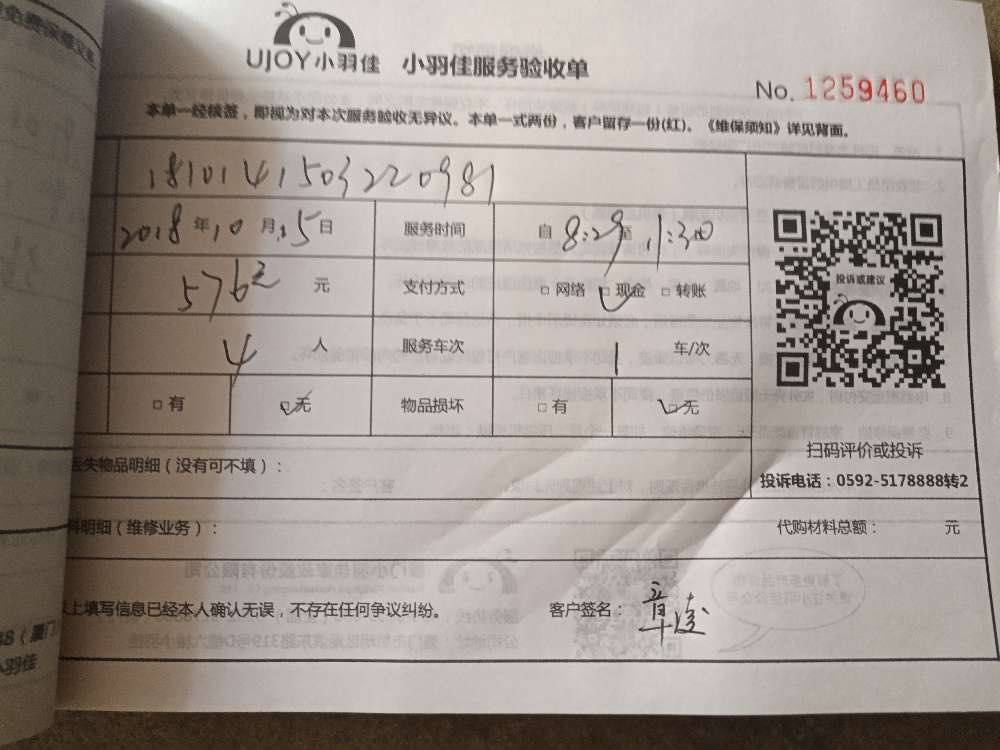 UJOY小羽佳 小羽佳服务验收单
No. 1259460
本单一经核签，即视为对本次服务验收无异议。本单一式两份，客户留存一份(红)。《维保须知》详见背面。
1810141503220981
2018年10月15日 服务时间 自8:29至11:30
元 支付方式 □网络 □现金 □转账
4人 服务车次 1车/次
□有 □无 物品损坏 □有 □无
投诉或建议
扫码评价或投诉
投诉电话：0592-5178888转2
丢失物品明细（没有可不填）：
料明细（维修业务）： 代购材料总额： 元
以上填写信息已经本人确认无误，不存在任何争议纠纷。 客户签名：